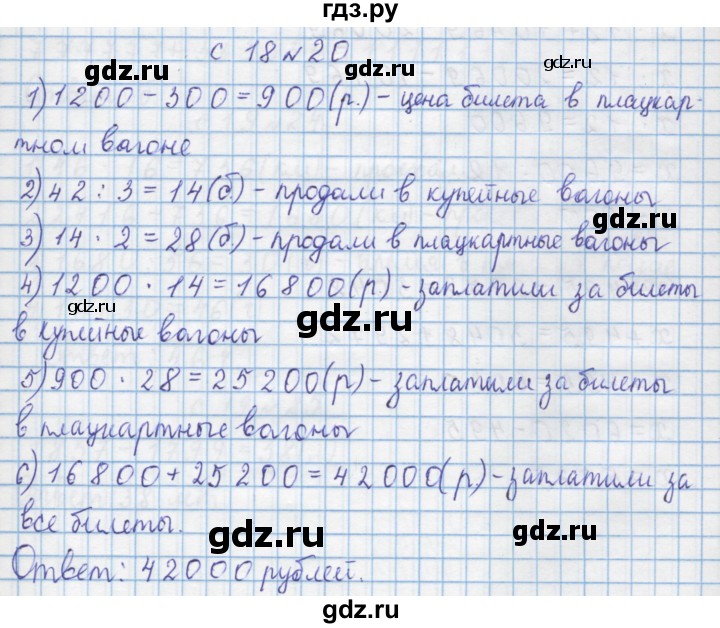 гдз.ру
с 18 № 20
gdz.ru gdz.ru
1) 1200 - 300 = 900 (р.) - цена билета в плацкар-
тном вагоне
2) 42 : 3 = 14 (б.) - продали в купейные вагоны
gdz.ru
3) 14 · 2 = 28 (б) - продали в плацкартные вагоны
4) 1200 · 14 = 16 800 (р) - заплатили за билеты
gdz.ru gdz.ru
в купейные вагоны
5) 900 · 28 = 25 200 (р) - заплатили за билеты
в плацкартные вагоны
6) 16 800 + 25 200 = 42 000 (р) - заплатили за
все билеты.
gdz.ru gdz.ru
Ответ: 42000 рублей.
gdz.ru